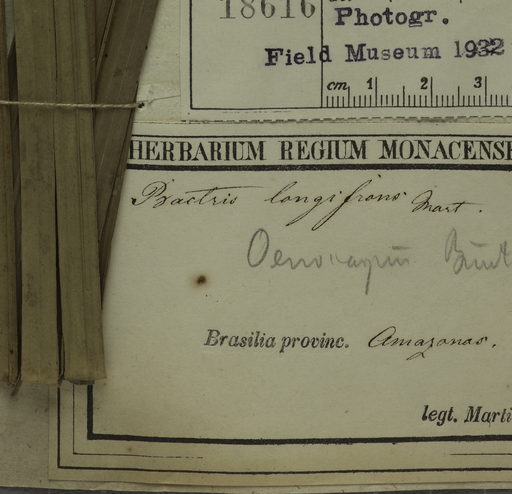 18616
Photogr.
Field Museum 1932
cm 1 2 3
HERBARIUM REGIUM MONACENSE
Bactris longifrons Mart.
Brasilia provinc. Amazonas.
legt. Marti